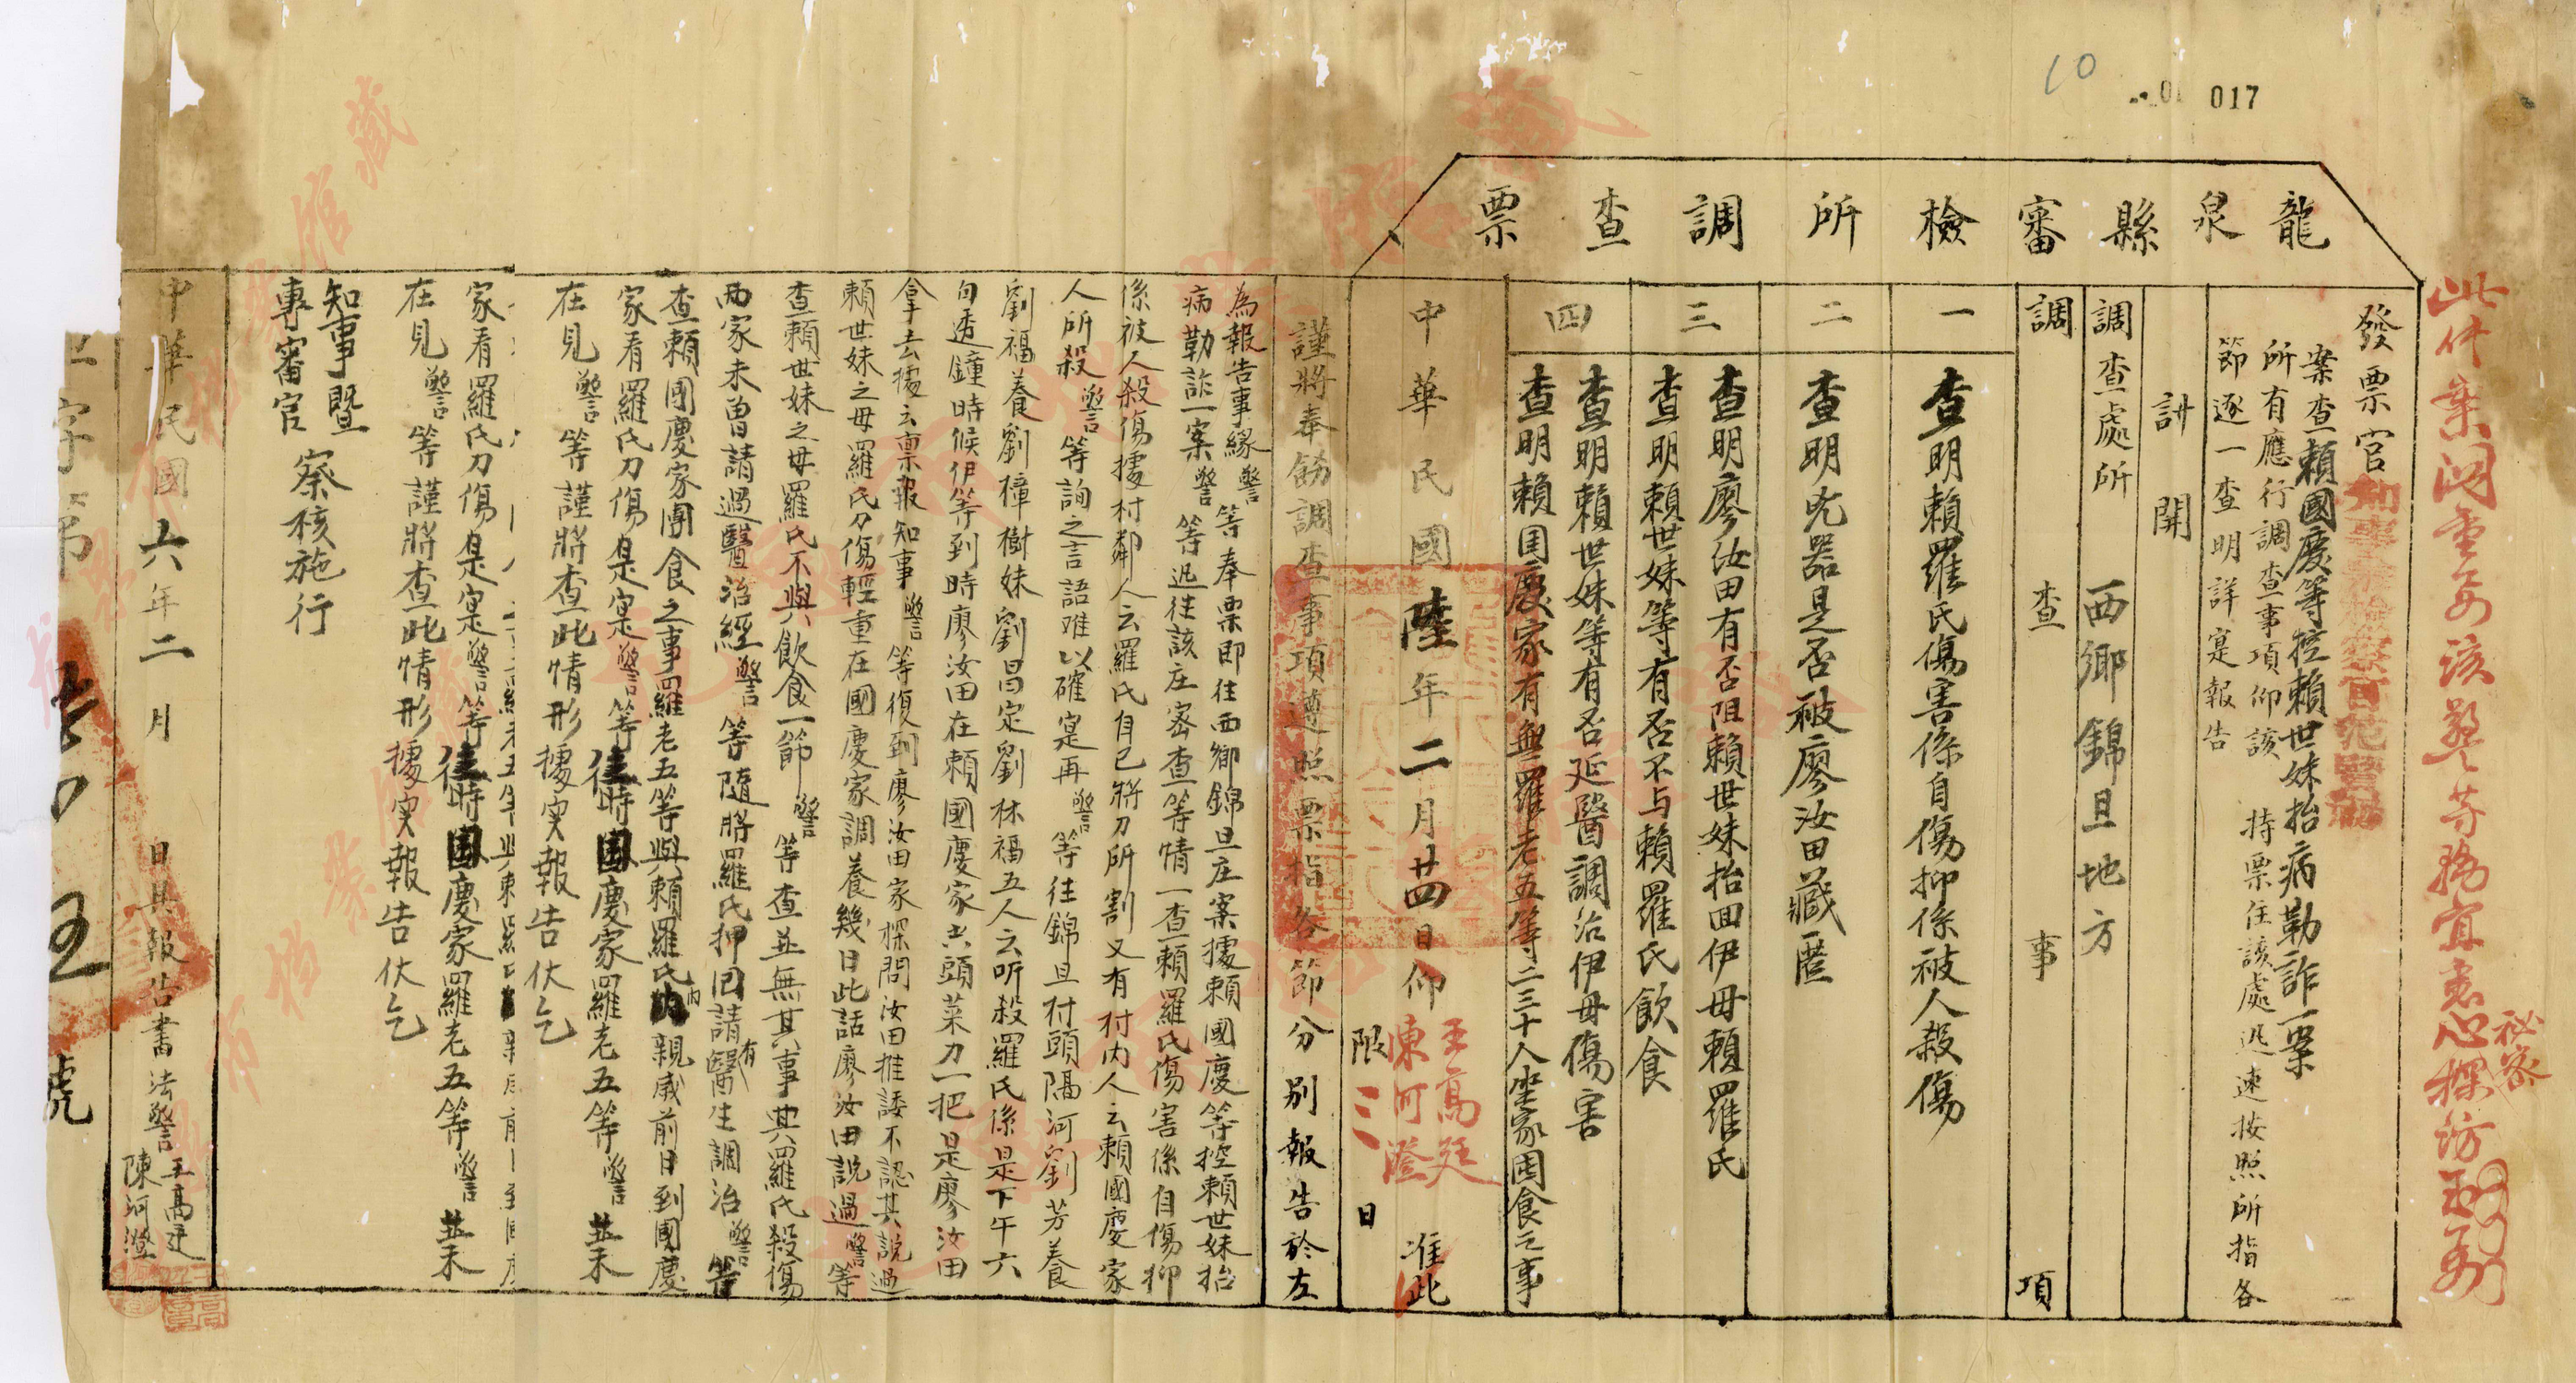 10
017
龍泉縣審檢所調查票
此件案關重要該警等務宜悉心探訪
秘密
發票官知事兼檢察官范賢礽
案查賴國慶等控賴世妹抬病勒詐一案
所有應行調查事項仰該 持票往該處迅速按照所指各
節逐一查明詳寔報告
計開
調查處所 西鄉錦旦地方
調查事項
一 查明賴羅氏傷害係自傷抑係被人殺傷
二 查明兇器是否被廖汝田藏匿
三 查明廖汝田有否阻賴世妹抬回伊母賴羅氏
查明賴世妹等有否不与賴羅氏飲食
四 查明賴世妹等有否延醫調治伊母傷害
查明賴国慶家有無羅老五等二三十人坐家囤食之事
中華民國陸年二月廿四日仰 王高廷 陳河澄 准此
限三日
謹將奉飭調查事項遵照票指各節分別報告於左
為報告事緣警等奉票即往西鄉錦旦庄案據賴國慶等控賴世妹抬
病勒詐一案警等迅往該庄密查等情一查賴羅氏傷害係自傷抑
係被人殺傷據村鄰人云羅氏自己將刀所割又有村內人云賴國慶家
人所殺警等詢之言語难以確寔再警等往錦旦村頭隔河劉芳養
劉福養劉樟樹妹劉昌定劉林福五人云听殺羅氏係是下午六
句透鐘時候伊等到時廖汝田在賴國慶家出頭菜刀一把是廖汝田
拿去據云禀報知事警等復到廖汝田家探問汝田推諉不認其說過
賴世妹之母羅氏刀傷輕重在國慶家調養幾日此話廖汝田說過警等
查賴世妹之母羅氏不與飲食一節警等查並無其事其羅氏殺傷
兩家未曽請過醫治經警等隨將羅氏押回請有醫生調治警等
查賴國慶家團食之事羅老五等與賴羅氏內親戚前日到國慶
家看羅氏刀傷是寔警等往時國慶家羅老五等警並未
在見警等謹將查此情形據实報告伏乞
家看羅氏刀傷是寔警等往時國慶家羅老五等警並未
在見警等謹將查此情形據实報告伏乞
知事暨
專審官 察核施行
中華民國六年二月 日具報告書法警 王高廷 陳河澄
字第
號